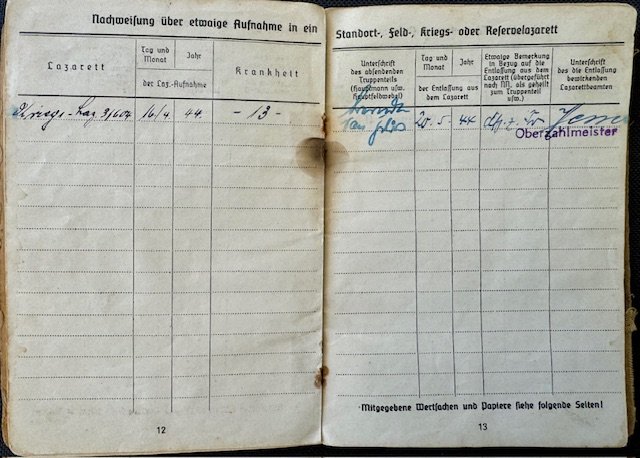 Nachweisung über etwaige Aufnahme in ein
Lazarett
Tag und
Monat
Jahr
der Laz.-Aufnahme
Krankheit
Kriegs-Laz. 3/604 16/4 44. - 13 -
12
Standort-, Feld-, Kriegs- oder Reservelazarett
Unterschrift
des absendenden
Truppenteils
(Hauptmann usw.
Hauptfeldwebel)
Tag und
Monat
Jahr
der Entlassung aus
dem Lazarett
Etwaige Bemerkung
in Bezug auf die
Entlassung aus dem
Lazarett (übergeführt
nach NN, als geheilt
zum Truppenteil
usw.)
Unterschrift
des die Entlassung
bewirkenden
Lazarettbeamten
20. 5. 44
Oberzahlmeister
Mitgegebene Wertsachen und Papiere siehe folgende Seiten!
13